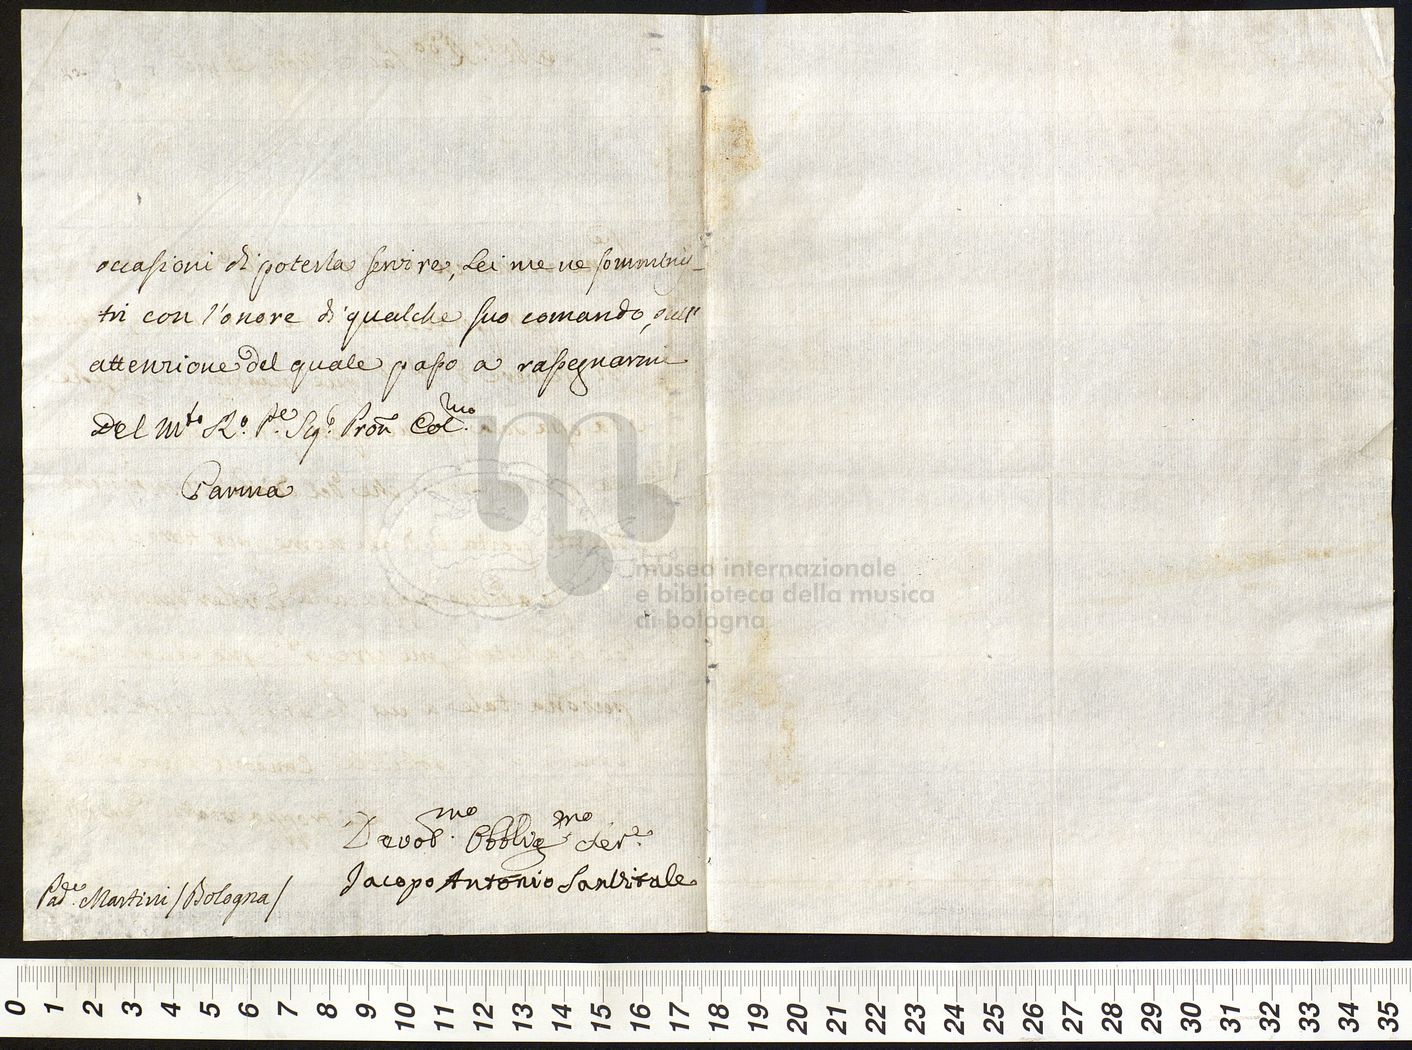 occasioni di poterla servire, Lei me ne sommini-
tri con l'onore di qualche suo comando, sull'
attenzione del quale passo a rassegnarmi
Del M.to R.o P.re Sig.e Pron Col.mo
Parma
Devot.mo Obblig.mo Ser.e
Jacopo Antonio Sanvitale
Pad.e Martini /Bologna/
museo internazionale
e biblioteca della musica
di bologna
0 1 2 3 4 5 6 7 8 9 10 11 12 13 14 15 16 17 18 19 20 21 22 23 24 25 26 27 28 29 30 31 32 33 34 35